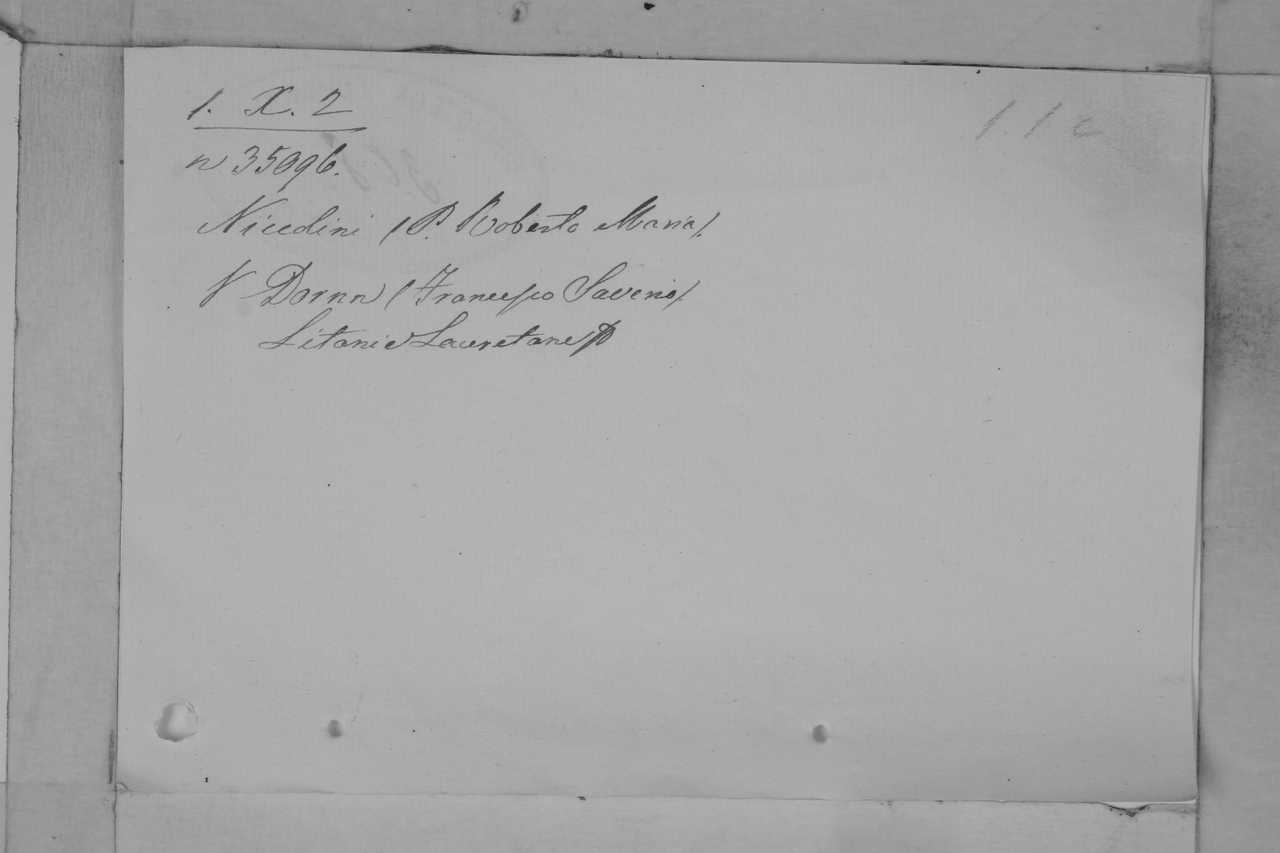 1. X. 2
n 35096.
Niccolini (P. Roberto Maria).
V Dornn (Francesco Saverio)
Litanie Lauretane